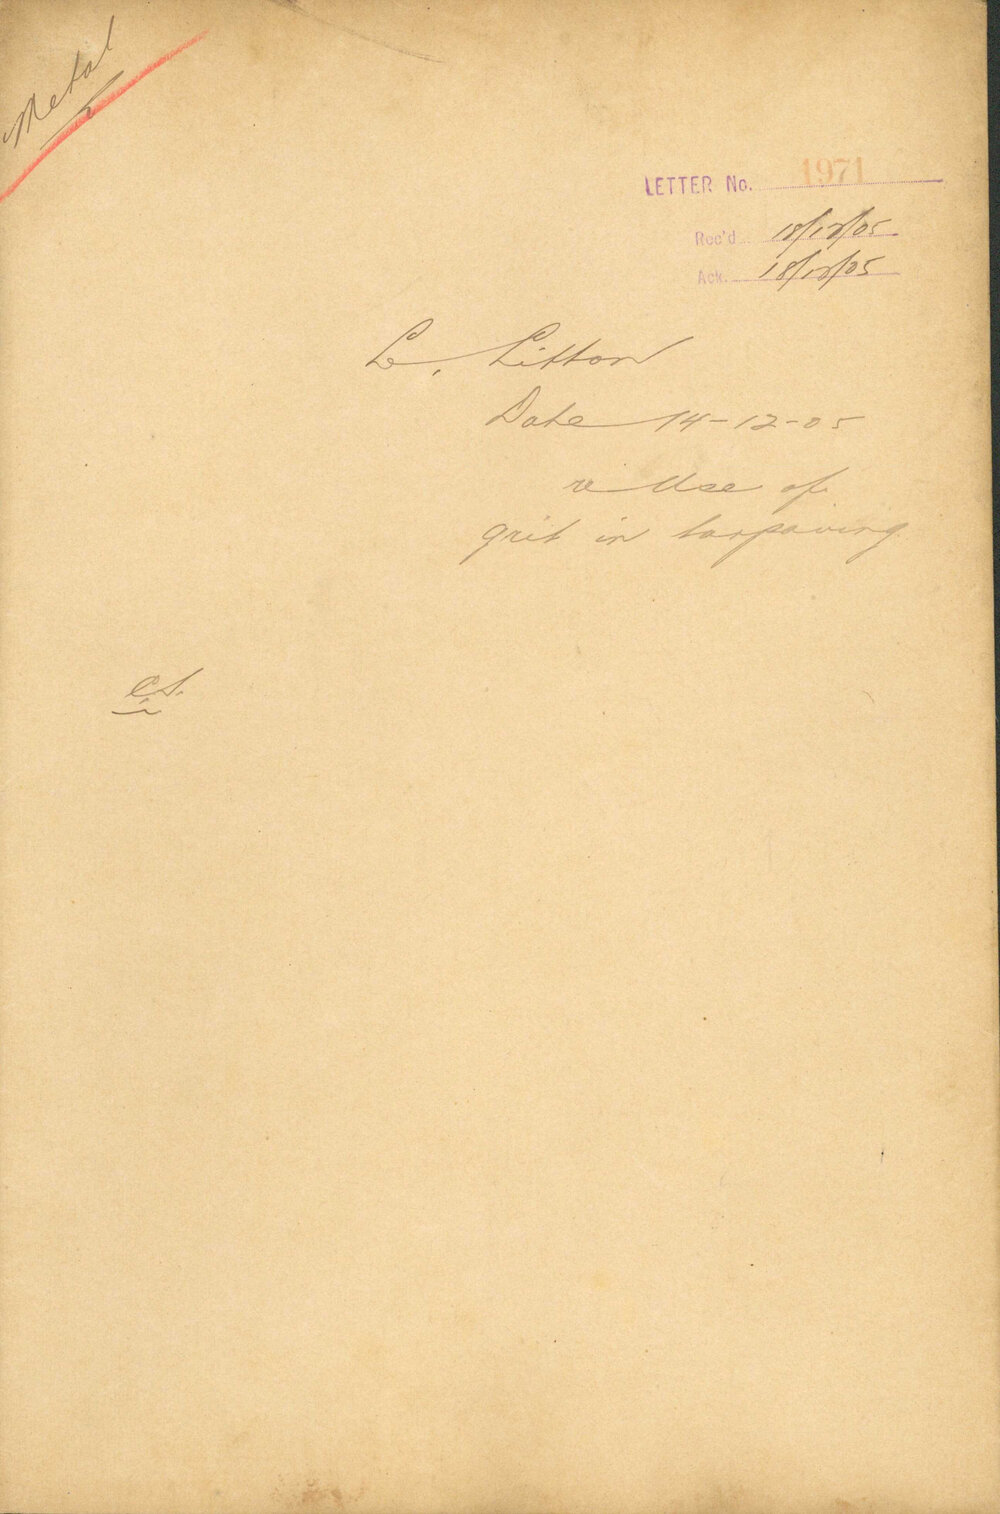 Metal
LETTER No. 1971
Rec'd 18/12/05
Ack. 18/12/05
L. Litton
Date 14-12-05
re Use of
grit in tarpaving